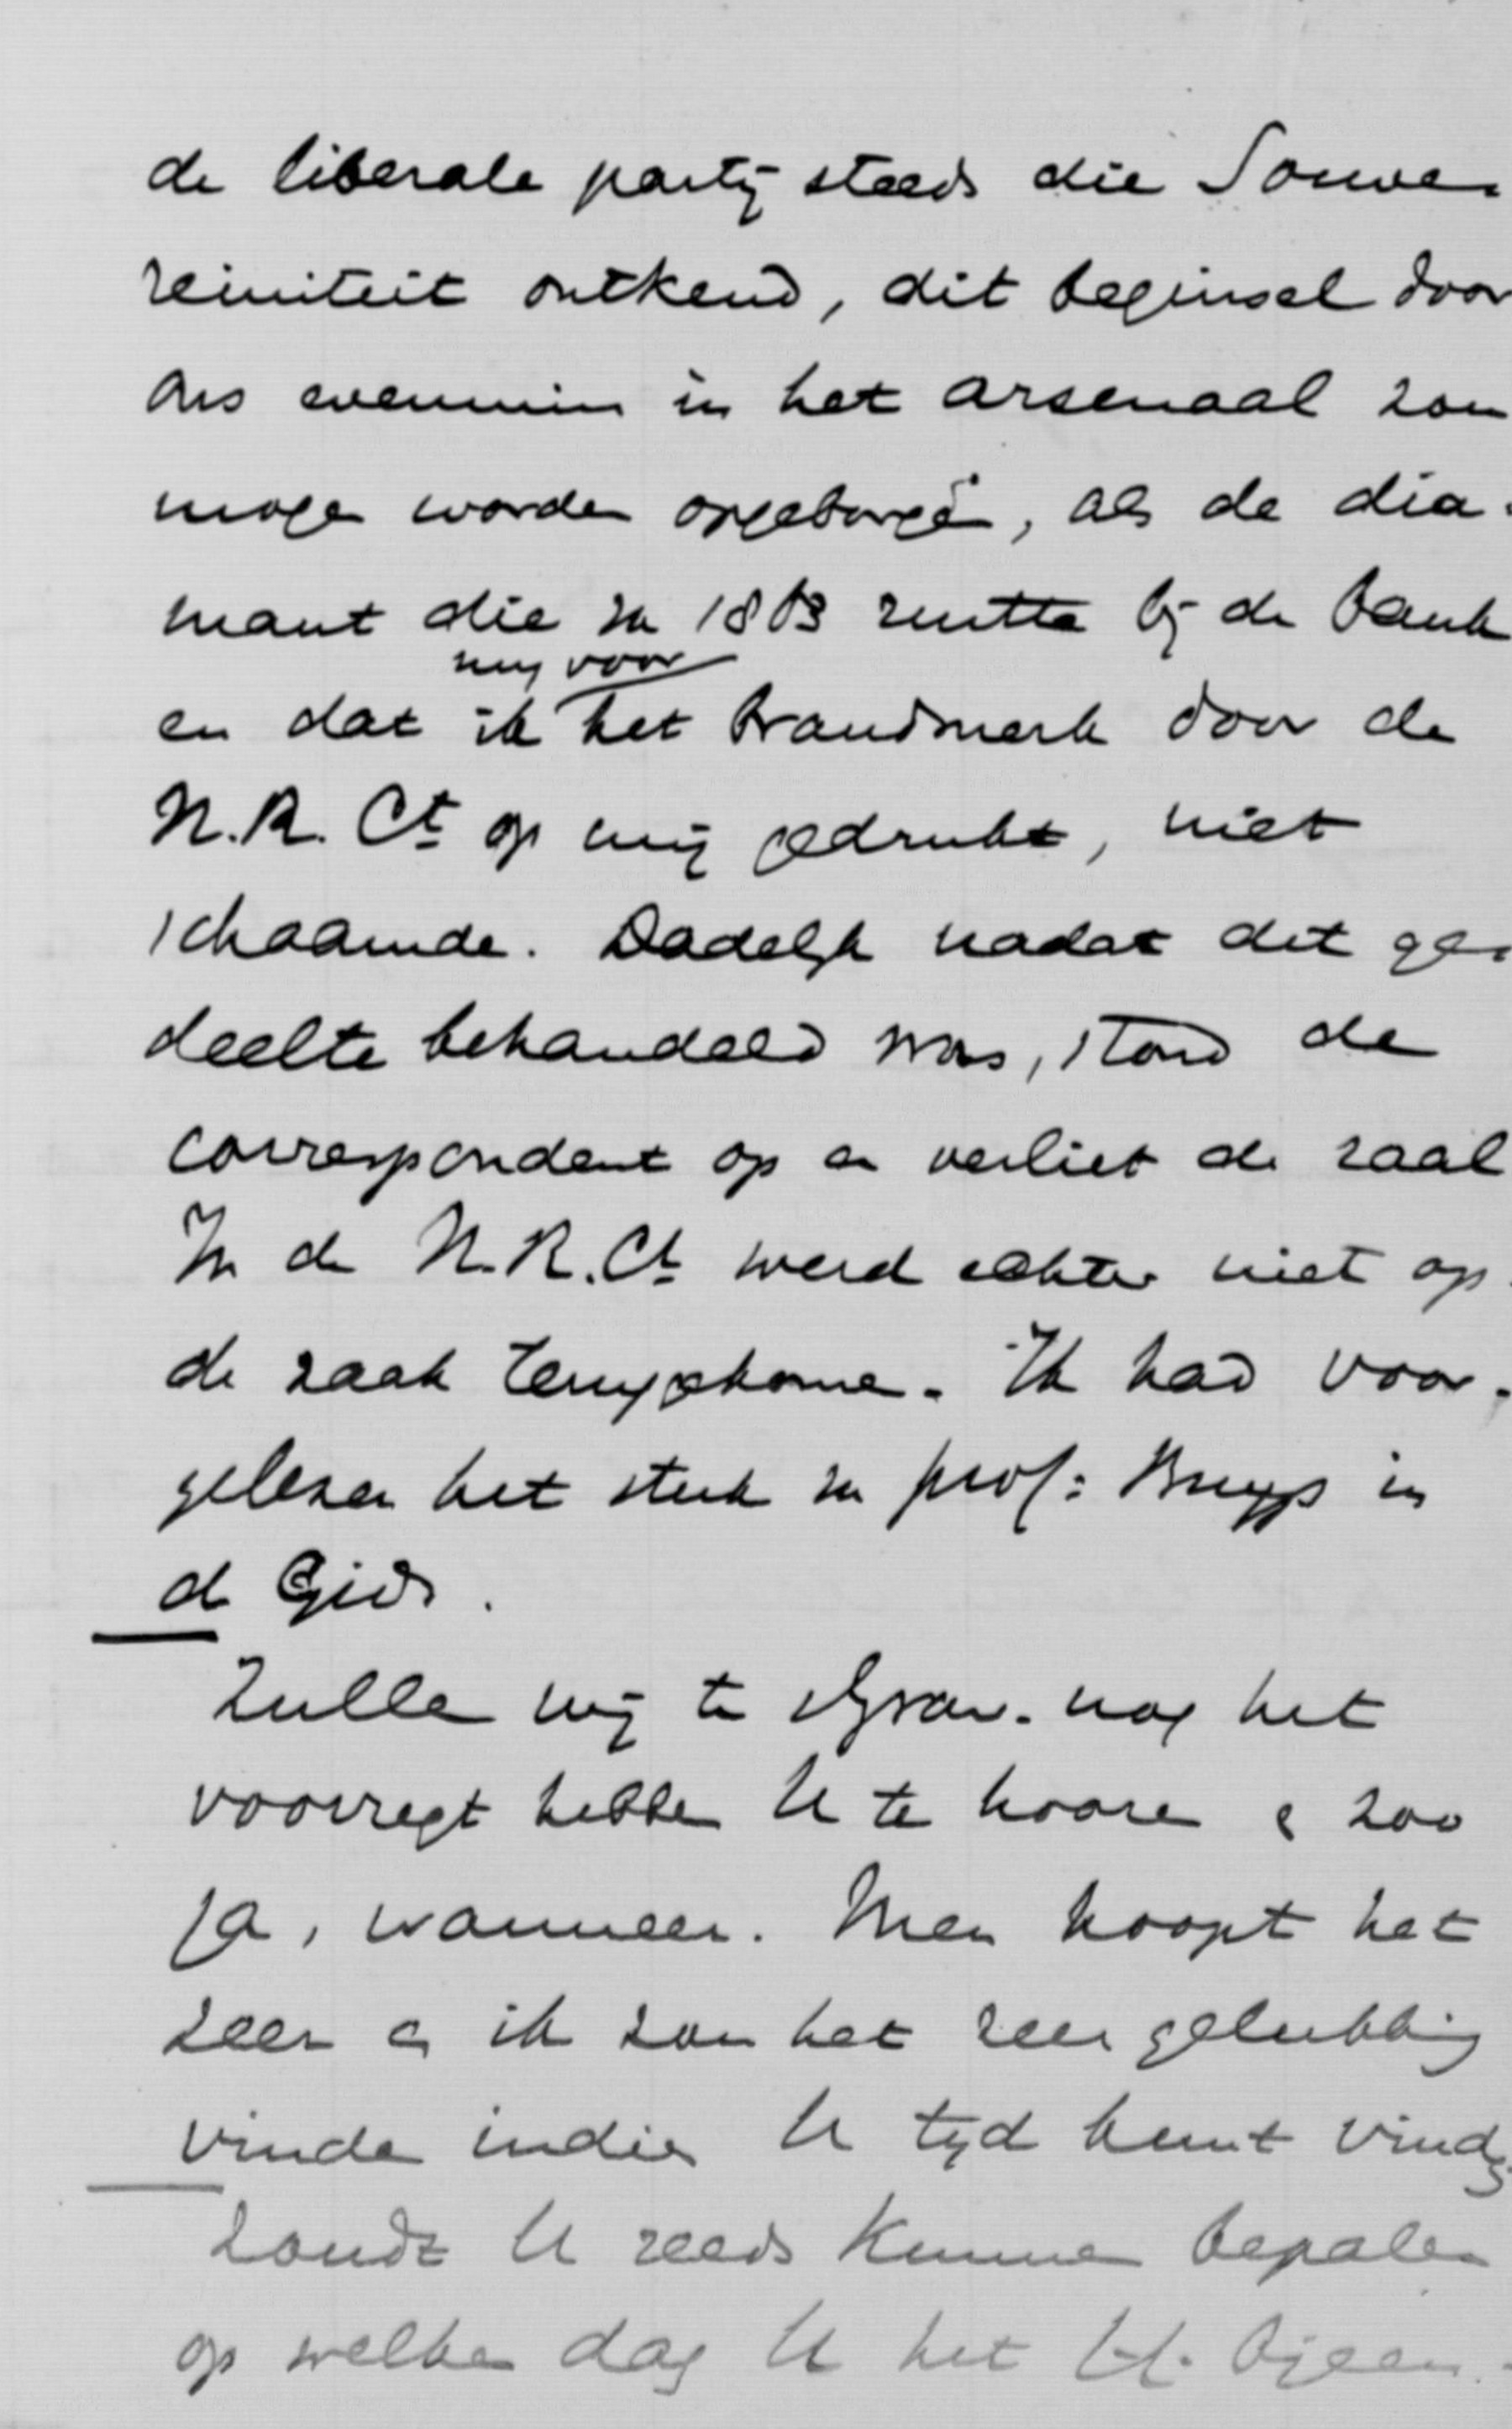 de liberale partij steeds die Souve-
reiniteit ontkend, dit beginsel door
ons evenmin in het arsenaal zou
mogen worden opgeborgen, als de dia-
mant die in 18 rustte bij de bank
mij voor
en dat ik het brandmerk door de
N.R. Ct op mij gedrukt, niet
schaamde. Dadelijk nadat dit ge-
deelte behandeld was, stond de
correspondent op en verliet de zaal
In de N.R. Ct werd echter niet op
de zaak teruggekomen. Ik had voor-
gelezen het stuk van prof: Buys in
de Gids.
Zullen wij te sGrav. nog het
voorregt hebben U te hooren & zoo
ja, wanneer. Men hoopt het
zeer en ik zou het zeer gelukkig
vinden indien U tijd kunt vinden
Zoudt U reeds kunnen bepalen
op welken dag U het bijeen-